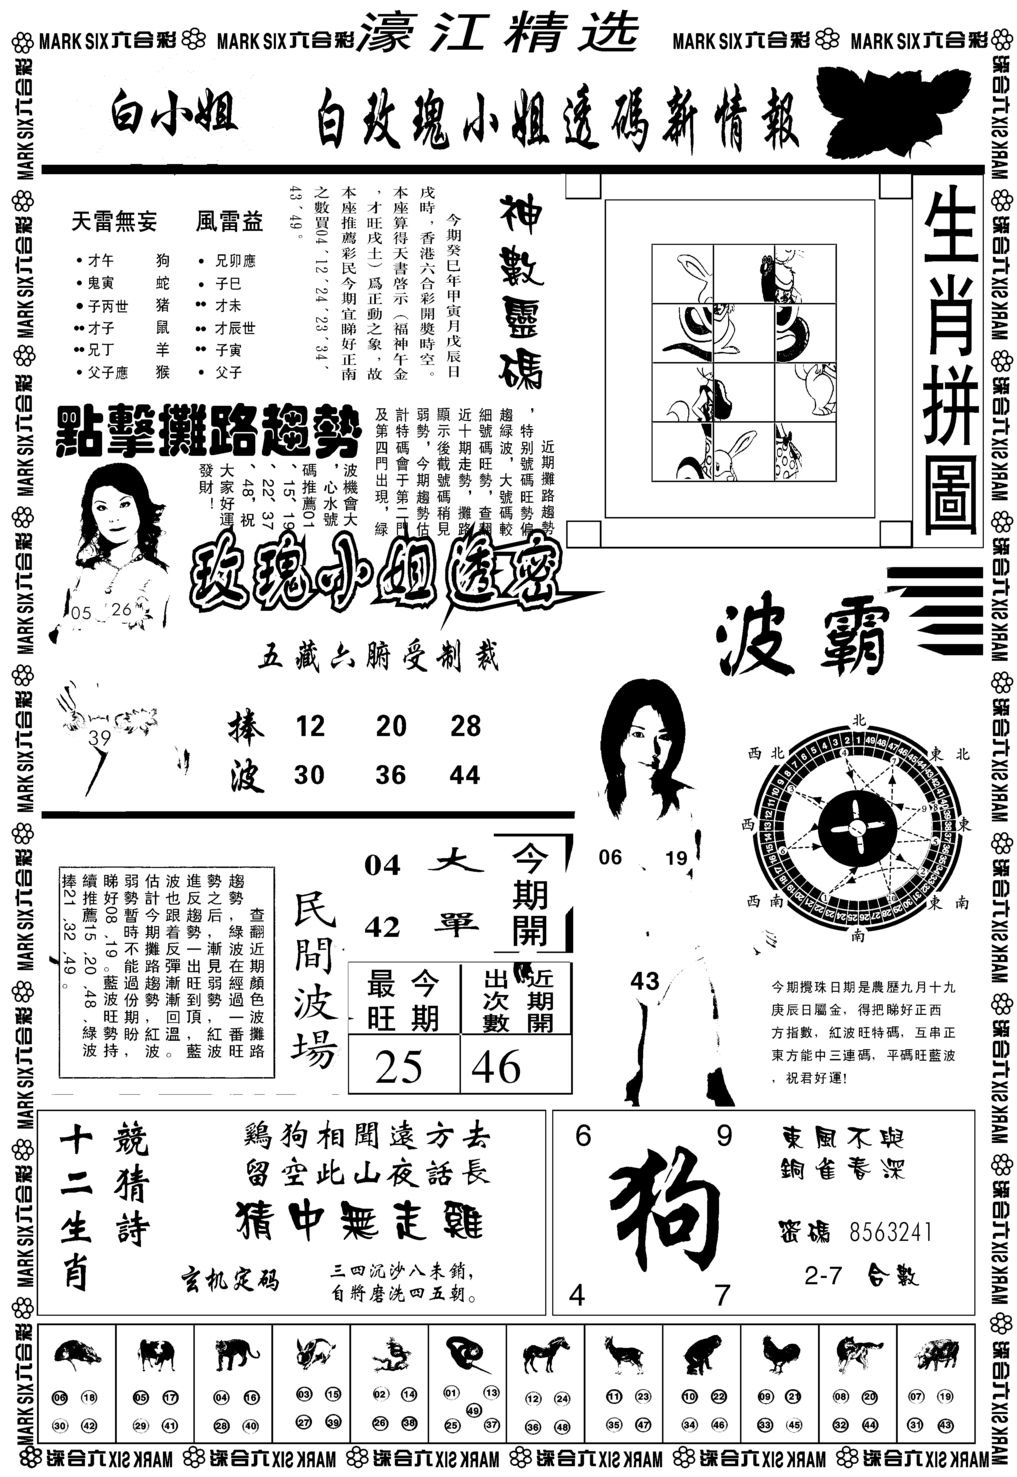 MARK SIX六合彩 MARK SIX六合彩 濠江精选 MARK SIX六合彩 MARK SIX六合彩
白小姐 白玫瑰小姐透碼新情報
天雷無妄 風雷益
才午 狗 兄卯應
鬼寅 蛇 子巳
子丙世 猪 才未
才子 鼠 才辰世
兄丁 羊 子寅
父子應 猴 父子
神數靈碼
今期癸巳年甲寅月戊辰日
戌時，香港六合彩開獎時空。
本座算得天書啓示（福神午金
，才旺戌土）爲正動之象，故
本座推薦彩民今期宜睇好正南
之數買04、12、24、23、34、
43、49。
生肖拼圖
點擊攤路趨勢
近期攤路趨勢
，特别號碼旺勢偏
趨緑波，大號碼較
細號碼旺勢，查翻
近十期走勢，攤路
顯示後截號碼稍見
弱勢，今期趨勢估
計特碼會于第二門
及第四門出現，緑
波機會大
，心水號
碼推薦01
、15、19
、22、37
、48，祝
大家好運
發財！
玫瑰小姐透密
05 26
39
五藏六腑受制裁
捧 12 20 28
波 30 36 44
波霸
06 19
43
北
西北 東北
西 東
西南 東南
南
今期攪珠日期是農歷九月十九
庚辰日屬金，得把睇好正西
方指數，紅波旺特碼，互串正
東方能中三連碼，平碼旺藍波
，祝君好運!
查翻近期顔色波攤路
趨勢，緑波在經過一番旺
勢之后，漸見弱勢，紅波
進反趨勢一出旺到頂，藍
波也跟着反彈漸漸回温。
估計今期攤路趨勢紅波
弱勢暫時不能過份期盼，
睇好08、19。藍波旺勢持
續推薦15、20、48、緑波
捧21、32、49。
民間波場
04 大
42 單
今期開
最旺 今期 出次數 近期開
25 46
十二生肖
競猜詩
鷄狗相聞遠方去
留空此山夜話長
猜中無走雞
玄机定码
三四沉沙八未銷，
自將磨洗四五朝。
6 9
狗
4 7
東風不與
銅雀春深
密碼 8563241
2-7 合數
06 18 05 17 04 16 03 15 02 14 01 13 12 24 11 23 10 22 09 21 08 20 07 19
49
30 42 29 41 28 40 27 39 26 38 25 37 36 48 35 47 34 46 33 45 32 44 31 43